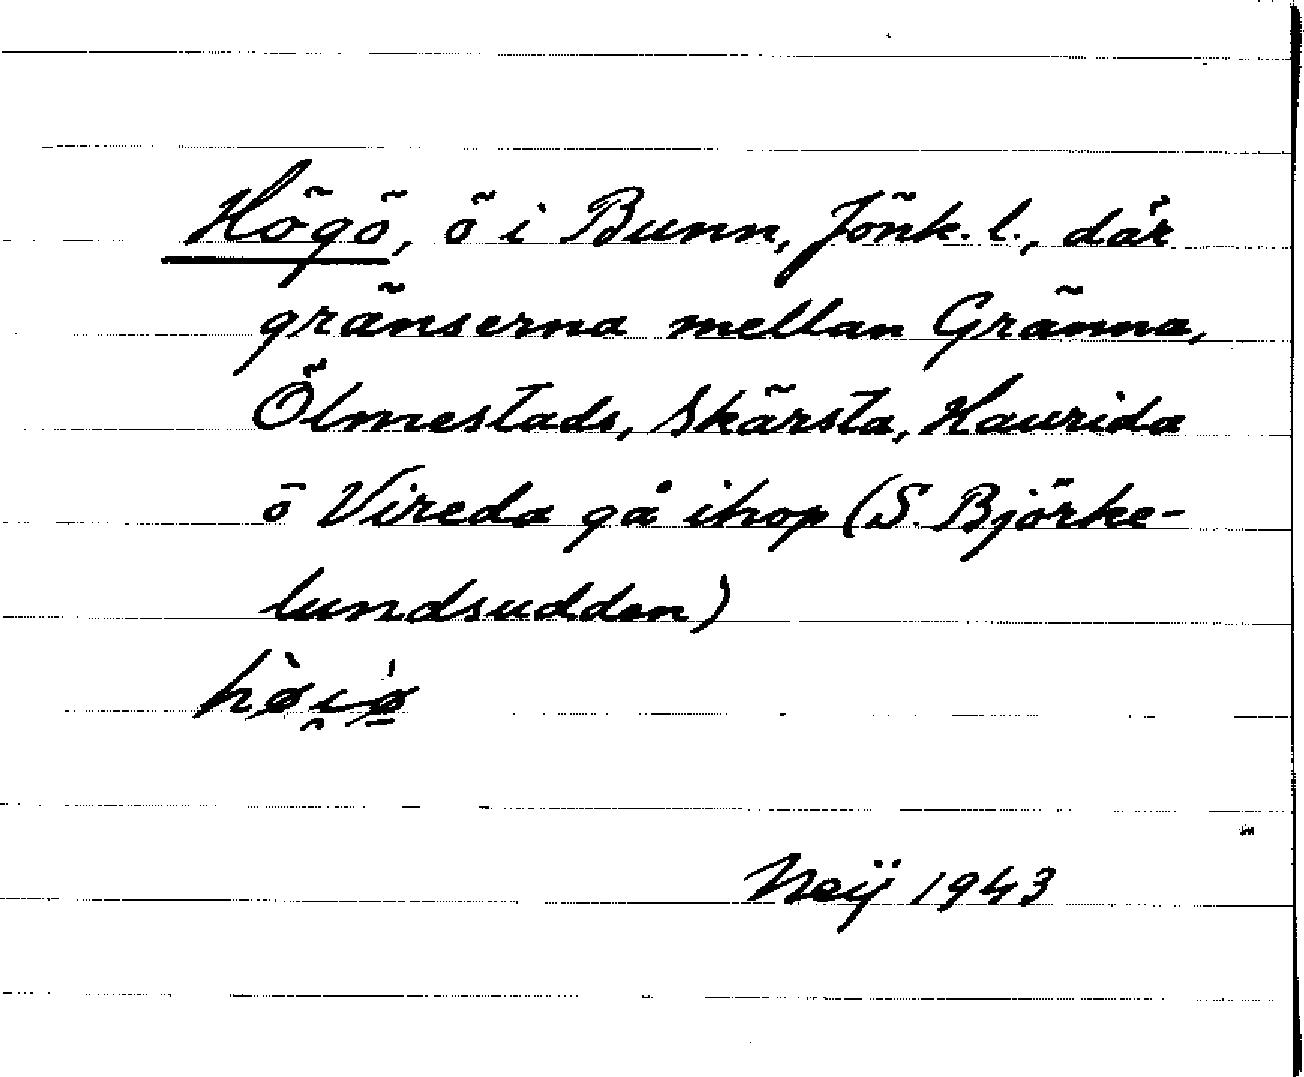 Högö, ö i Bunn, Jönk. l., där
gränserna mellan Gränna,
Ölmestads, Skärsta, Haurida
o Vireda gå ihop (S. Björke-
lundsudden)
Neij 1943